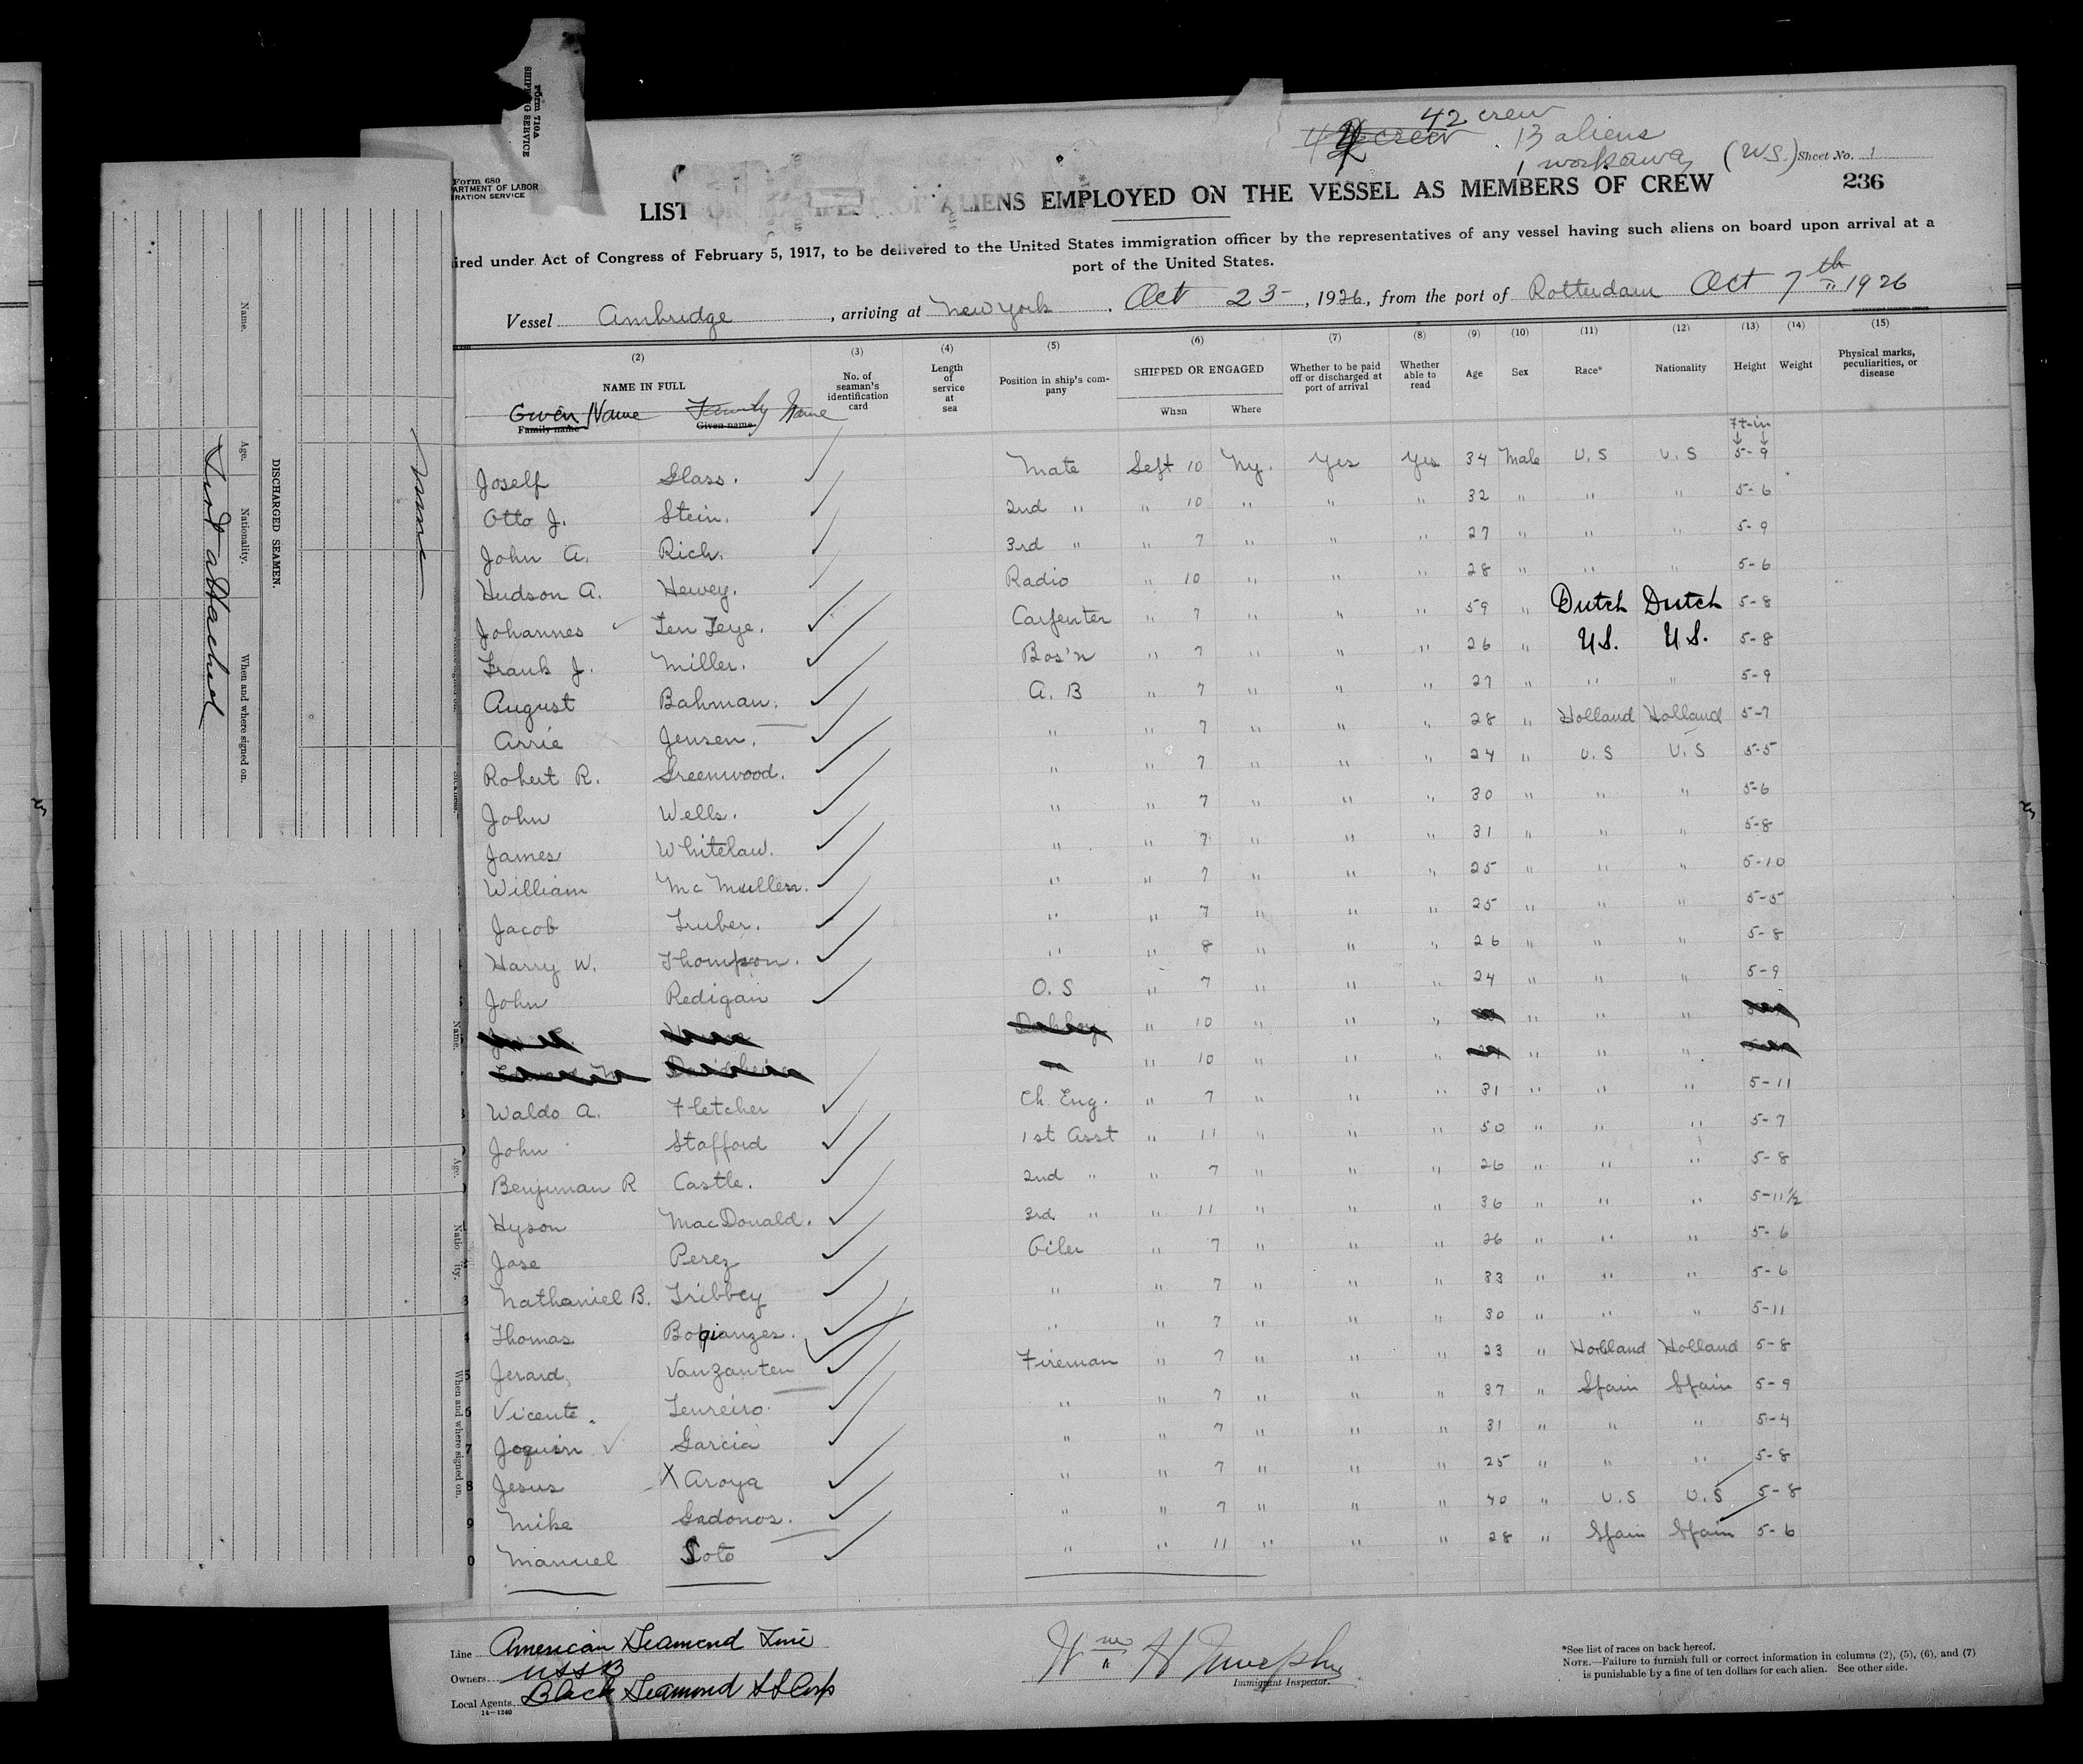 Form 710A
SHIPPING SERVICE
Name.
Age.
Nationality.
When and where signed on.
First attached
DISCHARGED SEAMEN.
None
Name.
Age.
When and where signed on.
42 crew
crew 13 aliens
1 workaway (U.S.) Sheet No. 1
Form 680
ARTMENT OF LABOR
RATION SERVICE
236
LIST OR MANIFEST OF ALIENS EMPLOYED ON THE VESSEL AS MEMBERS OF CREW
ired under Act of Congress of February 5, 1917, to be delivered to the United States immigration officer by the representatives of any vessel having such aliens on board upon arrival at a
port of the United States.
Vessel Ambridge, arriving at New York, Oct 23, 1926, from the port of Rotterdam Oct 7th 1926
(2) (3) (4) (5) (6) (7) (8) (9) (10) (11) (12) (13) (14) (15)
NAME IN FULL No. of seaman's identification card Length of service at sea Position in ship's company SHIPPED OR ENGAGED When Where Whether to be paid off or discharged at port of arrival Whether able to read Age Sex Race* Nationality Height Weight Physical marks, peculiarities, or disease
Given Name Family Name
Family name Given name
Ft-in
Joself Glass. Mate Sept 10 Ny. Yes Yes 34 Male U.S U.S 5-9
Otto J. Stein. 2nd " " 10 " " " 32 " " " 5-6
John A. Rich. 3rd " " 7 " " " 27 " " " 5-9
Hudson A. Hewey. Radio " 10 " " " 28 " " " 5-6
Johannes Ten Teye. Carpenter " 7 " " " 59 " Dutch Dutch 5-8
Frank J. Miller. Bos'n " 7 " " " 26 " U.S. U.S. 5-8
August Bahman. A.B " 7 " " " 27 " " " 5-9
Arrie Jensen. " " 7 " " " 28 " Holland Holland 5-7
Robert R. Greenwood. " " 7 " " " 24 " U.S U.S 5-5
John Wells. " " 7 " " " 30 " " " 5-6
James Whitelaw. " " 7 " " " 31 " " " 5-8
William McMullen. " " 7 " " " 25 " " " 5-10
Jacob Truber. " " 7 " " " 25 " " " 5-5
Harry W. Thompson. " " 8 " " " 26 " " " 5-8
John Redigan O.S " 7 " " " 24 " " " 5-9
" 10 " " " " " "
" 10 " " " " " "
Waldo A. Fletcher Ch. Eng. " 7 " " " 31 " " " 5-11
John Stafford 1st Asst " 11 " " " 50 " " " 5-7
Benjiman R Castle. 2nd " " 7 " " " 26 " " " 5-8
Hyson MacDonald. 3rd " " 11 " " " 36 " " " 5-11½
Jose Perez Oiler " 7 " " " 26 " " " 5-6
Nathaniel B. Tribbey " " 7 " " " 33 " " " 5-6
Thomas " " 7 " " " 30 " " " 5-11
Jerard Vanzanten Fireman " 7 " " " 23 " Holland Holland 5-8
Vicente Tenreiro. " " 7 " " " 37 " Spain Spain 5-9
Joquin Garcia " " 7 " " " 31 " " " 5-4
Jesus X Aroya " " 7 " " " 25 " " " 5-8
Mike Gadonos. " " 7 " " " 40 " U.S U.S 5-8
Manuel Soto " " 11 " " " 28 " Spain Spain 5-6
Line American Diamond Line
Owners USSB
Local Agents Black Diamond SS Corp
14-1240
Wm H Murphy
Immigrant Inspector.
*See list of races on back hereof.
NOTE.—Failure to furnish full or correct information in columns (2), (5), (6), and (7)
is punishable by a fine of ten dollars for each alien. See other side.